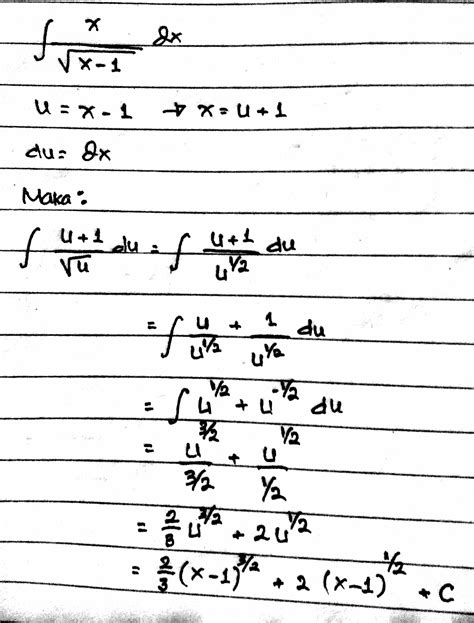 ∫ x/√(x-1) dx
u = x - 1 → x = u + 1
du = dx
Maka :
∫ (u+1)/√u du = ∫ (u+1)/u^(1/2) du
= ∫ u/u^(1/2) + 1/u^(1/2) du
= ∫ u^(1/2) + u^(-1/2) du
= u^(3/2)/(3/2) + u^(1/2)/(1/2)
= 2/3 u^(3/2) + 2u^(1/2)
= 2/3 (x-1)^(3/2) + 2 (x-1)^(1/2) + C